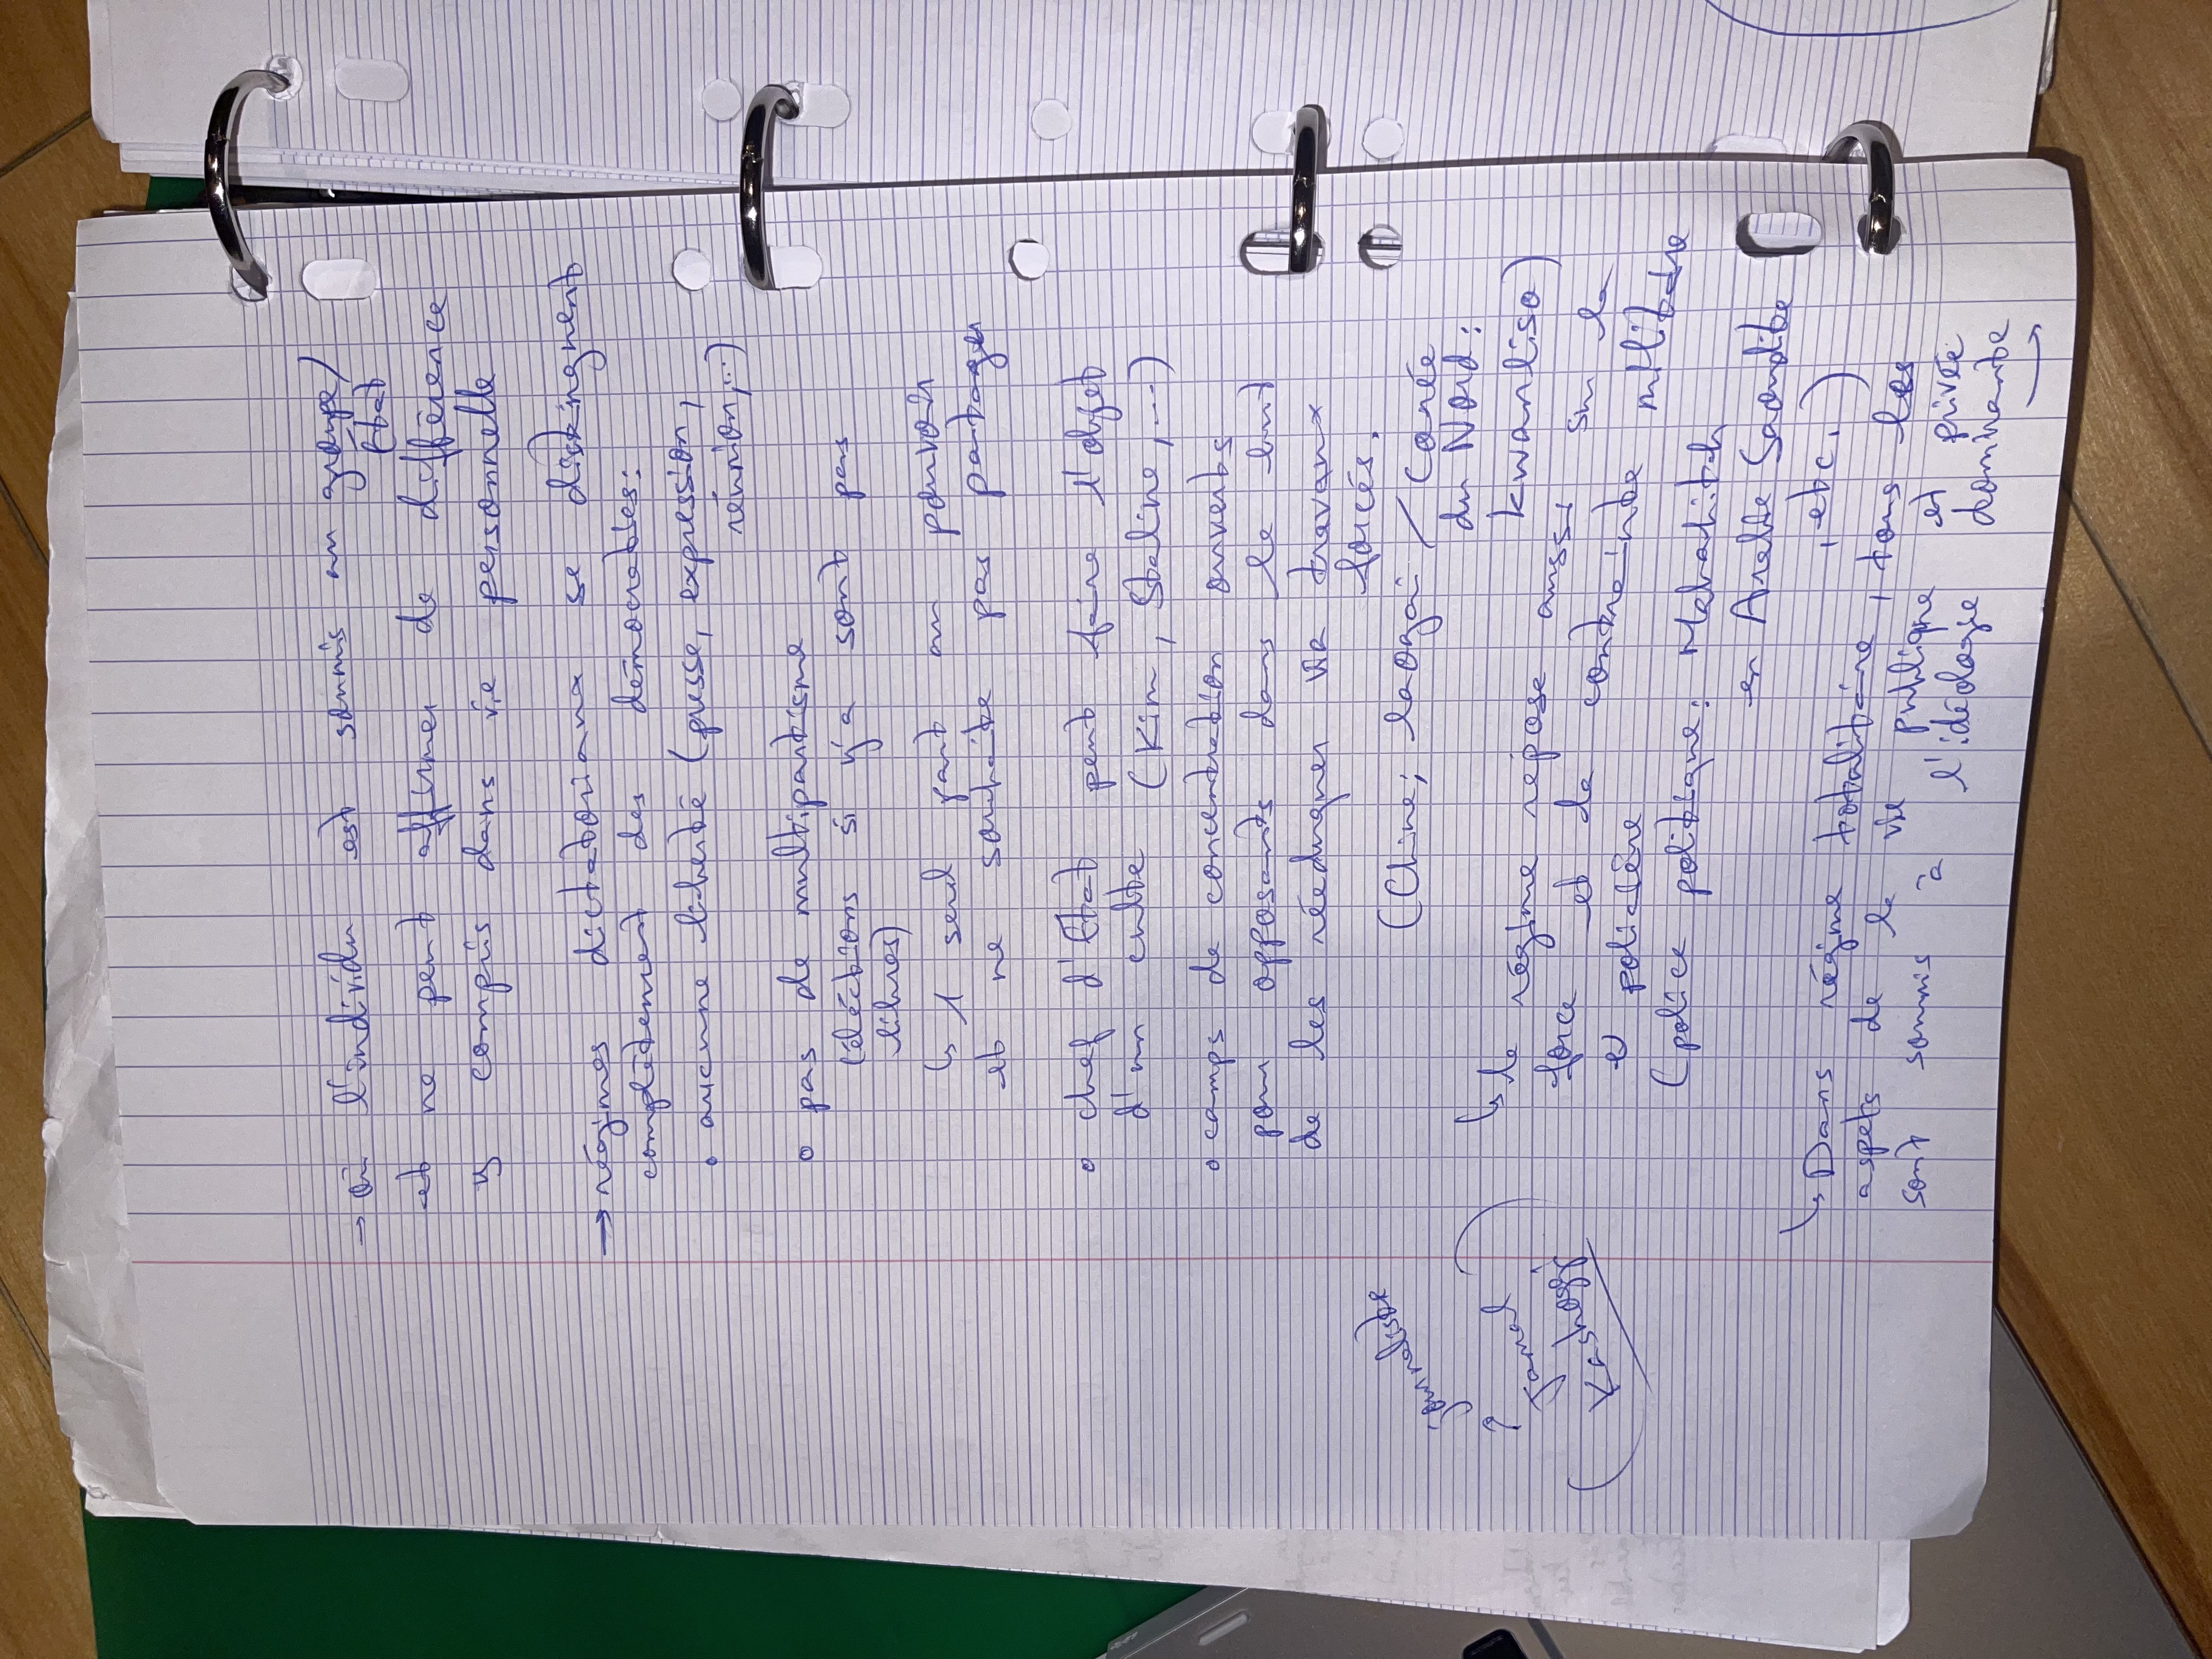 → où l'individu est soumis au groupe/
État
et ne peut affirmer de différence
y compris dans vie personnelle
→ régimes dictatoriaux se distinguent
complètement des démocraties:
o aucune liberté (presse, expression,
réunion,...)
o pas de multipartisme
(élections si y'a sont pas
libres)
↳ 1 seul parti au pouvoir
et ne souhaite pas partager
o chef d'État peut faire l'objet
d'un culte (Kim, Staline,...)
o camps de concentration ouverts
pour opposants dans le but
de les rééduquer via travaux
forcés.
(Chine; laogai / Corée
du Nord:
kwanliso)
↳ le régime repose aussi sur la
force et de contrainte militaire
et policière
(police politique: Mabahith
en Arabie Saoudite
, etc.)
journaliste
↑
Jamal
Kashoggi
↳ Dans régime totalitaire, tous les
aspets de la vie publique et privée
sont soumis à l'idéologie dominante
→